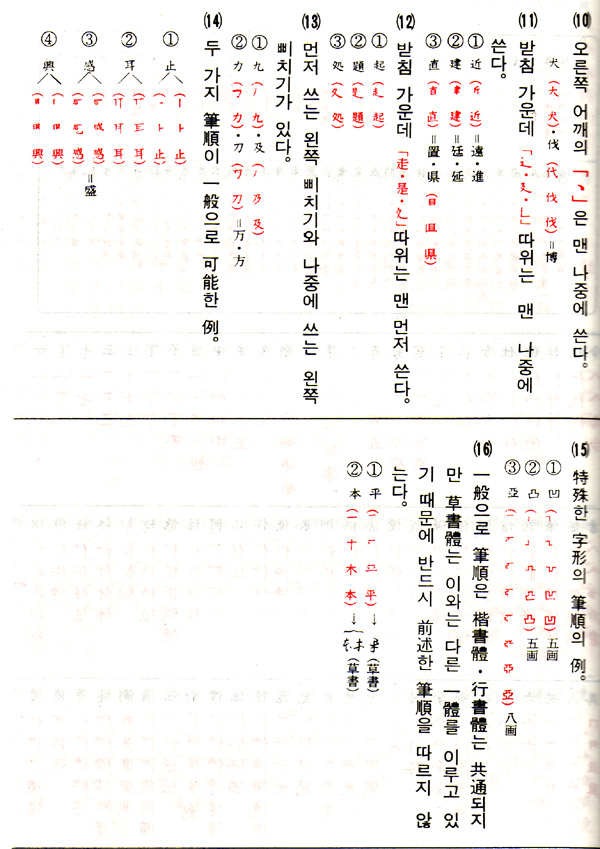 (10) 오른쪽 어깨의 「丶」은 맨 나중에 쓴다.
犬(大 犬)・伐(代 伐 伐)=博
(11) 받침 가운데 「辶・廴・乚」따위는 맨 나중에
쓴다.
① 近(斤 近)=遠・進
② 建(聿 建)=廷・延
③ 直(直)=置・県(目 県)
(12) 받침 가운데 「走・是・夂」따위는 맨 먼저 쓴다.
① 起(走 起)
② 題(是 題)
③ 処(夂 処)
(13) 먼저 쓰는 왼쪽 삐치기와 나중에 쓰는 왼쪽
삐치기가 있다.
① 九(丿 九)・及(丿 乃 及)
② 力(フ 力)・刀(フ 刀)=万・方
(14) 두 가지 筆順이 一般으로 可能한 例。
① 止(丨 ト 止)
② 耳
③ 感=盛
④ 興
(15) 特殊한 字形의 筆順의 例。
① 凹(凹)五画
② 凸(凸)五画
③ 亞(亞)八画
(16) 一般으로 筆順은 楷書體・行書體는 共通되지
만 草書體는 이와는 다른 一體를 이루고 있
기 때문에 반드시 前述한 筆順을 따르지 않
는다。
① 平(一 平)→(草書)
② 本(一 十 木 本)→(草書)